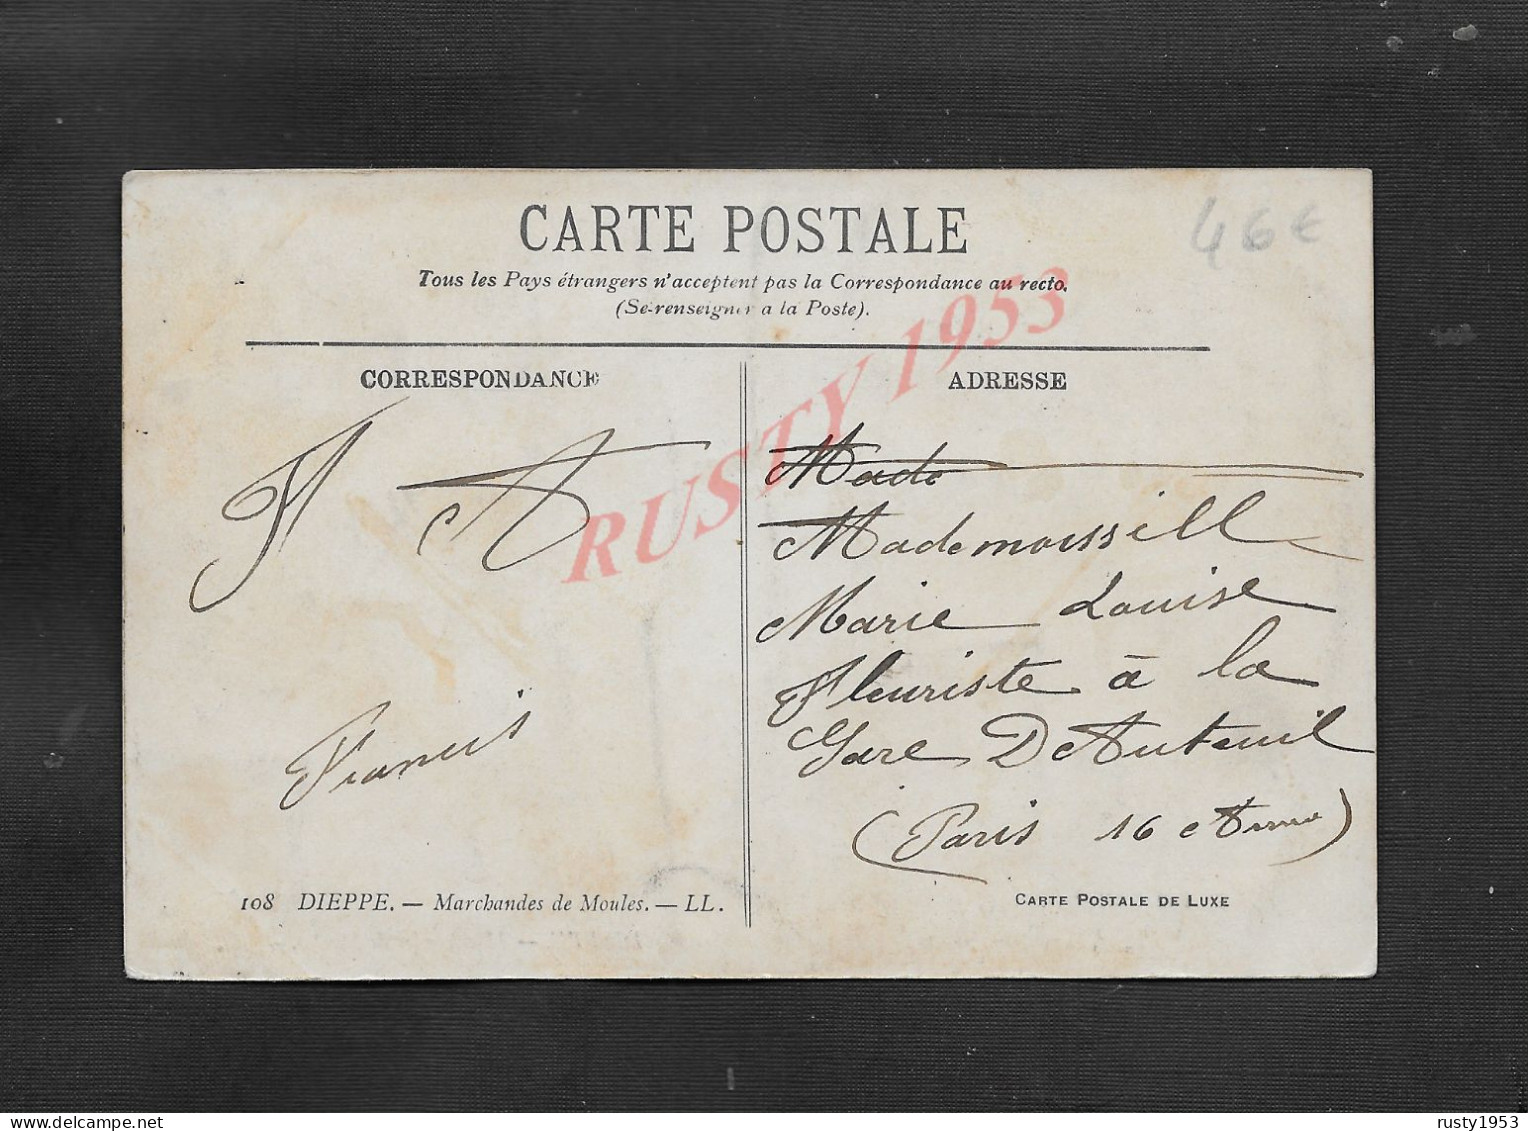 CARTE POSTALE
46€
Tous les Pays étrangers n'acceptent pas la Correspondance au recto.
(Se renseigner a la Poste).
CORRESPONDANCE
ADRESSE
RUSTY 1953
Made
Mademoissill
Marie Louise
Fleuriste à la
Gare D'Auteuil
(Paris 16e
Francis
108 DIEPPE. — Marchandes de Moules. — LL.
CARTE POSTALE DE LUXE
rusty1953